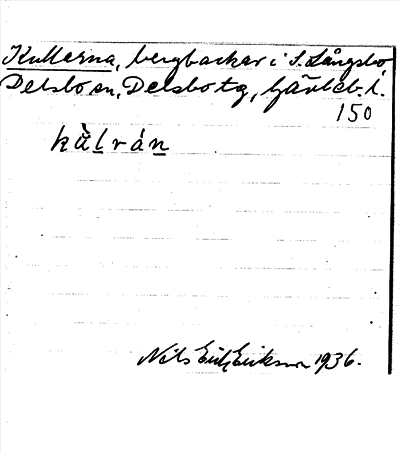 Kullarna, bergbackar i S. Långsbo
Delsbo sn, Delsbo tg, Gävleb. l.
150
kùlrán
Nils Erik Eriksson 1936.